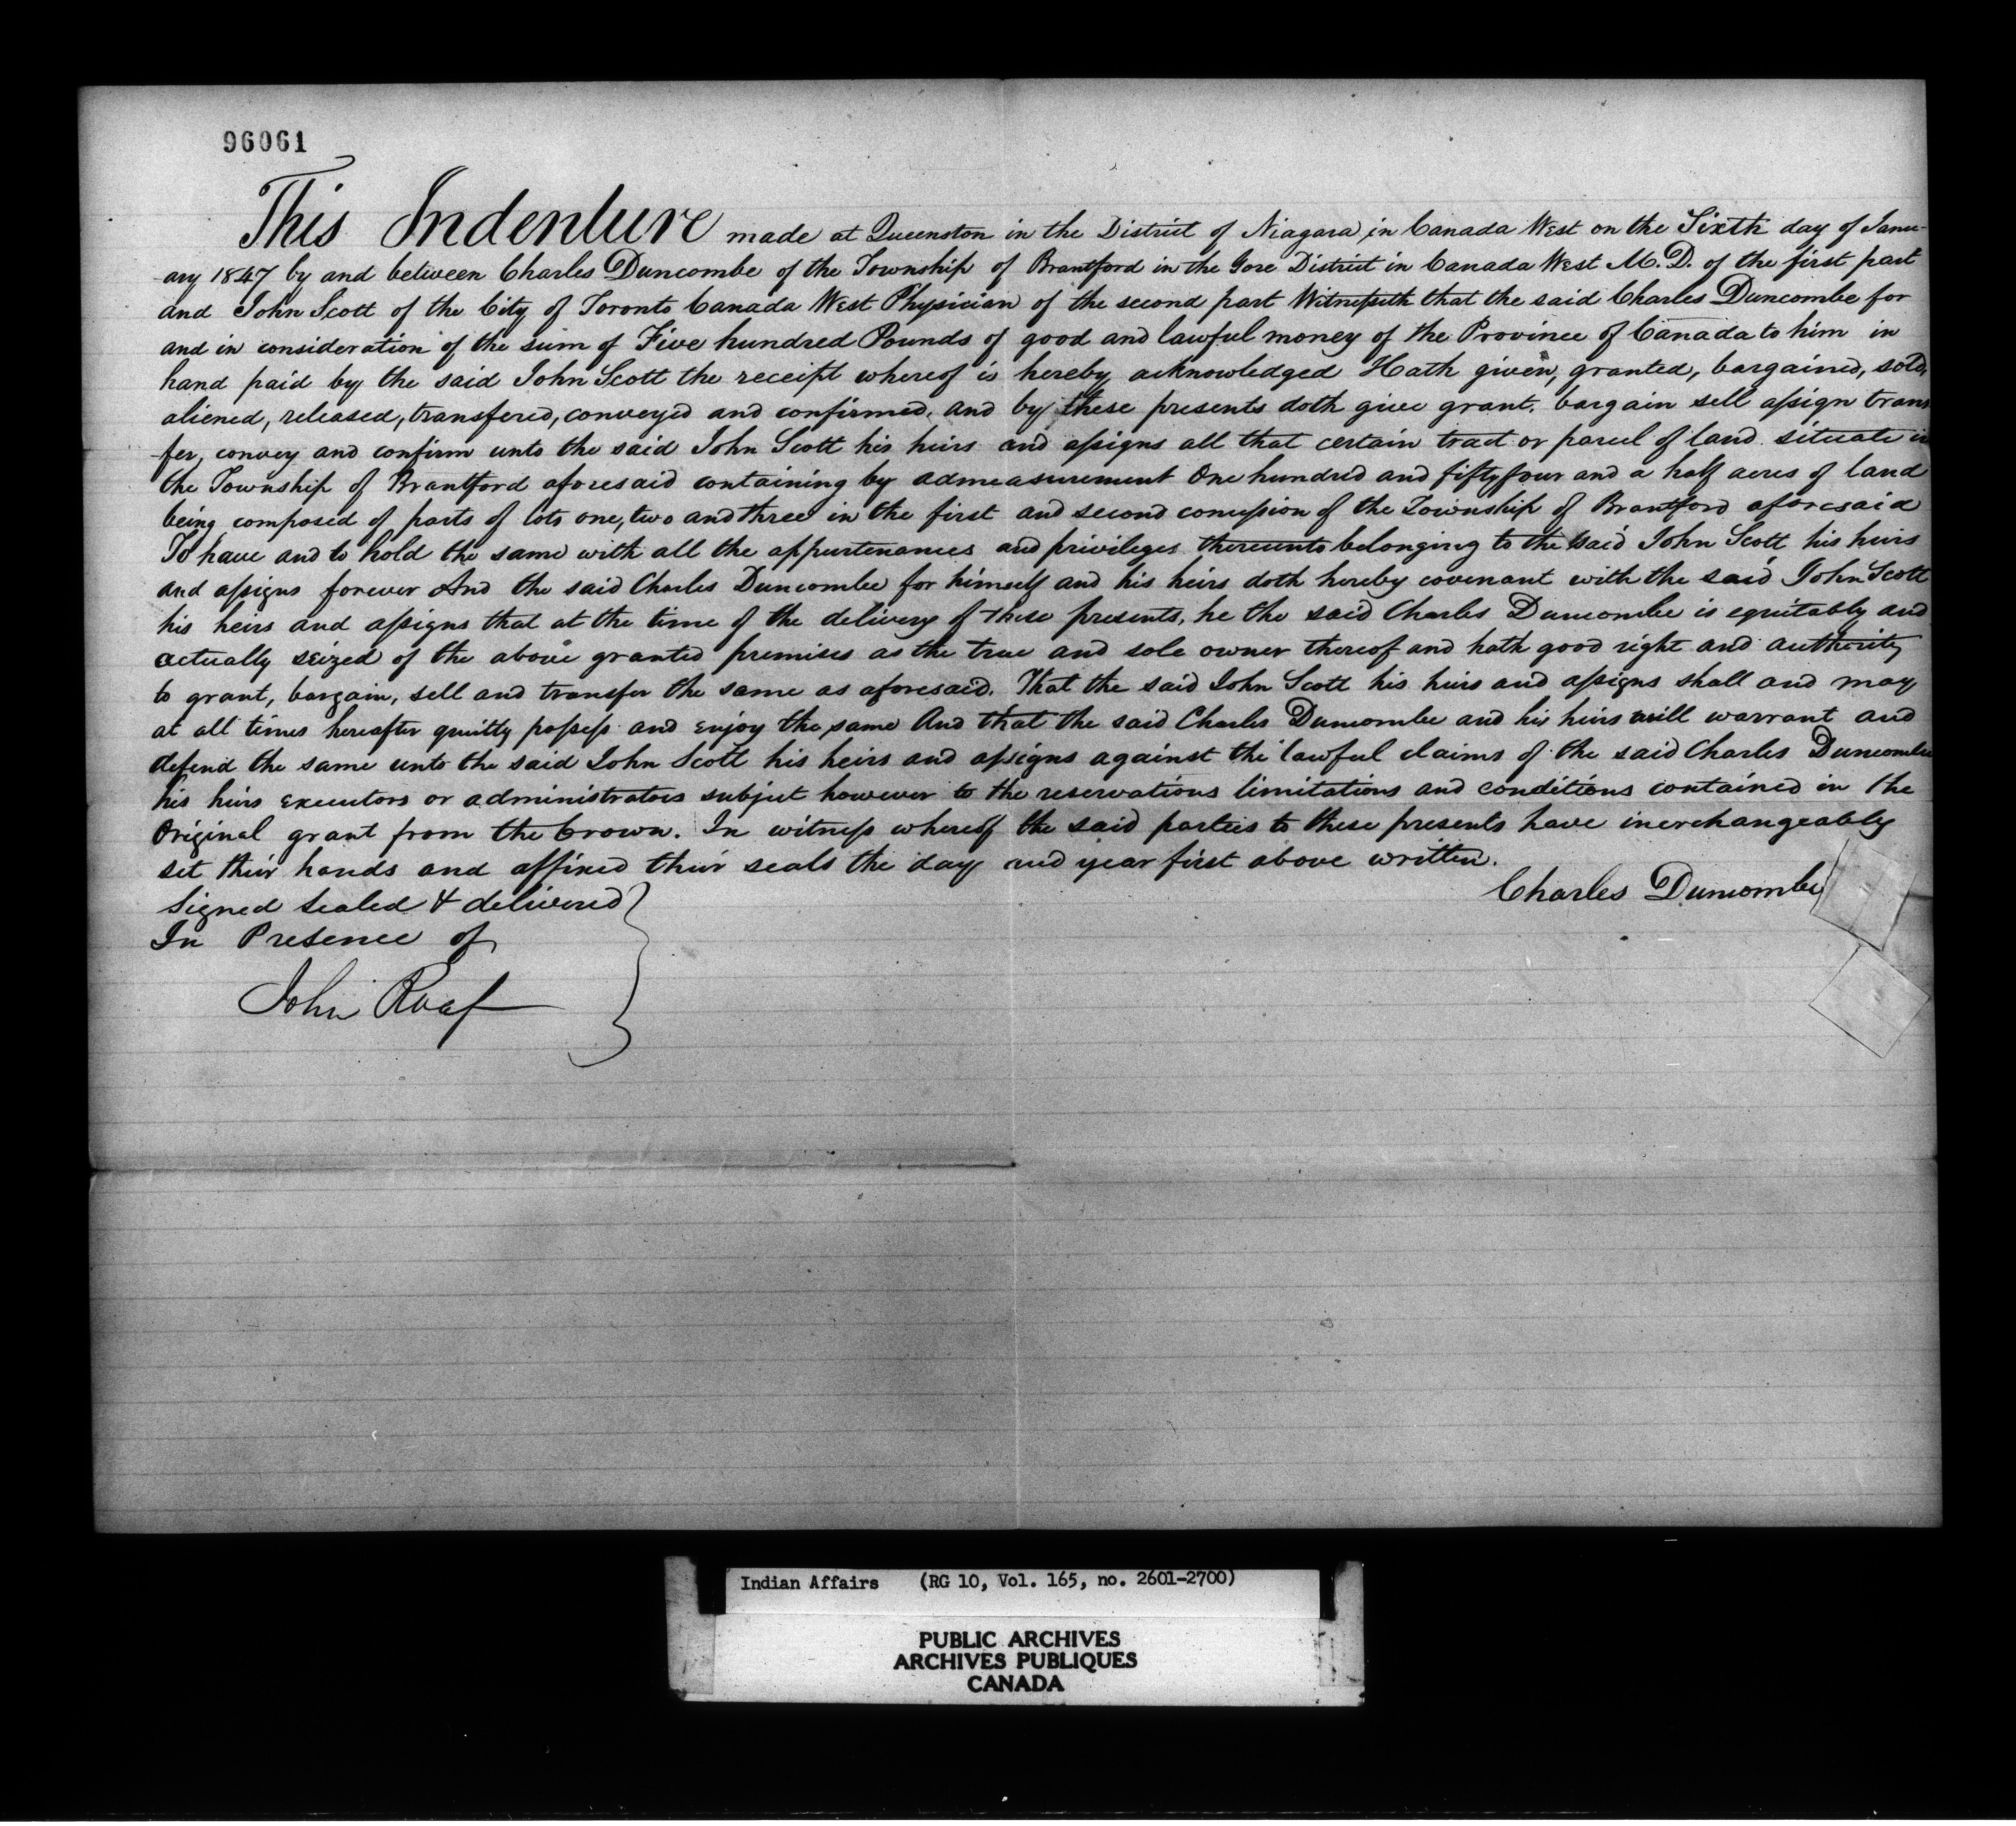 96061
This Indenture made at Queenston in the District of Niagara, in Canada West on the Sixth day of Janu-
-ary 1847 by and between Charles Duncombe of the Township of Brantford in the Gore District in Canada West M.D. of the first part
and John Scott of the City of Toronto Canada West Physician of the second part Witnesseth that the said Charles Duncombe for
and in consideration of the sum of Five hundred Pounds of good and lawful money of the Province of Canada to him in
hand paid by the said John Scott the receipt whereof is hereby acknowledged Hath given, granted, bargained, sold,
aliened, released, transfered, conveyed and confirmed, and by these presents doth give grant, bargain sell assign trans
-fer, convey and confirm unto the said John Scott his heirs and assigns all that certain tract or parcel of land situate in
the Township of Brantford aforesaid containing by admeasurement One hundred and fifty four and a half acres of land
being composed of parts of lots one, two and three in the first and second concession of the Township of Brantford aforesaid
To have and to hold the same with all the appurtenances and privileges thereunto belonging to the said John Scott his heirs
and assigns forever And the said Charles Duncombe for himself and his heirs doth hereby covenant with the said John Scott
his heirs and assigns that at the time of the delivery of these presents, he the said Charles Duncombe is equitably and
actually seized of the above granted premises as the true and sole owner thereof and hath good right and authority
to grant, bargain, sell and transfer the same as aforesaid. That the said John Scott his heirs and assigns shall and may
at all times hereafter quietly possess and enjoy the same And that the said Charles Duncombe and his heirs will warrant and
defend the same unto the said John Scott his heirs and assigns against the lawful claims of the said Charles Duncombe
his heirs executors or administrators subject however to the reservations limitations and conditions contained in the
Original grant from the Crown. In witness whereof the said parties to these presents have inerchangeably
set their hands and affixed their seals the day and year first above written.
Charles Duncombe
Signed Sealed & delivered
In Presence of
John Roaf
Indian Affairs (RG 10, Vol. 165, no. 2601-2700)
PUBLIC ARCHIVES
ARCHIVES PUBLIQUES
CANADA